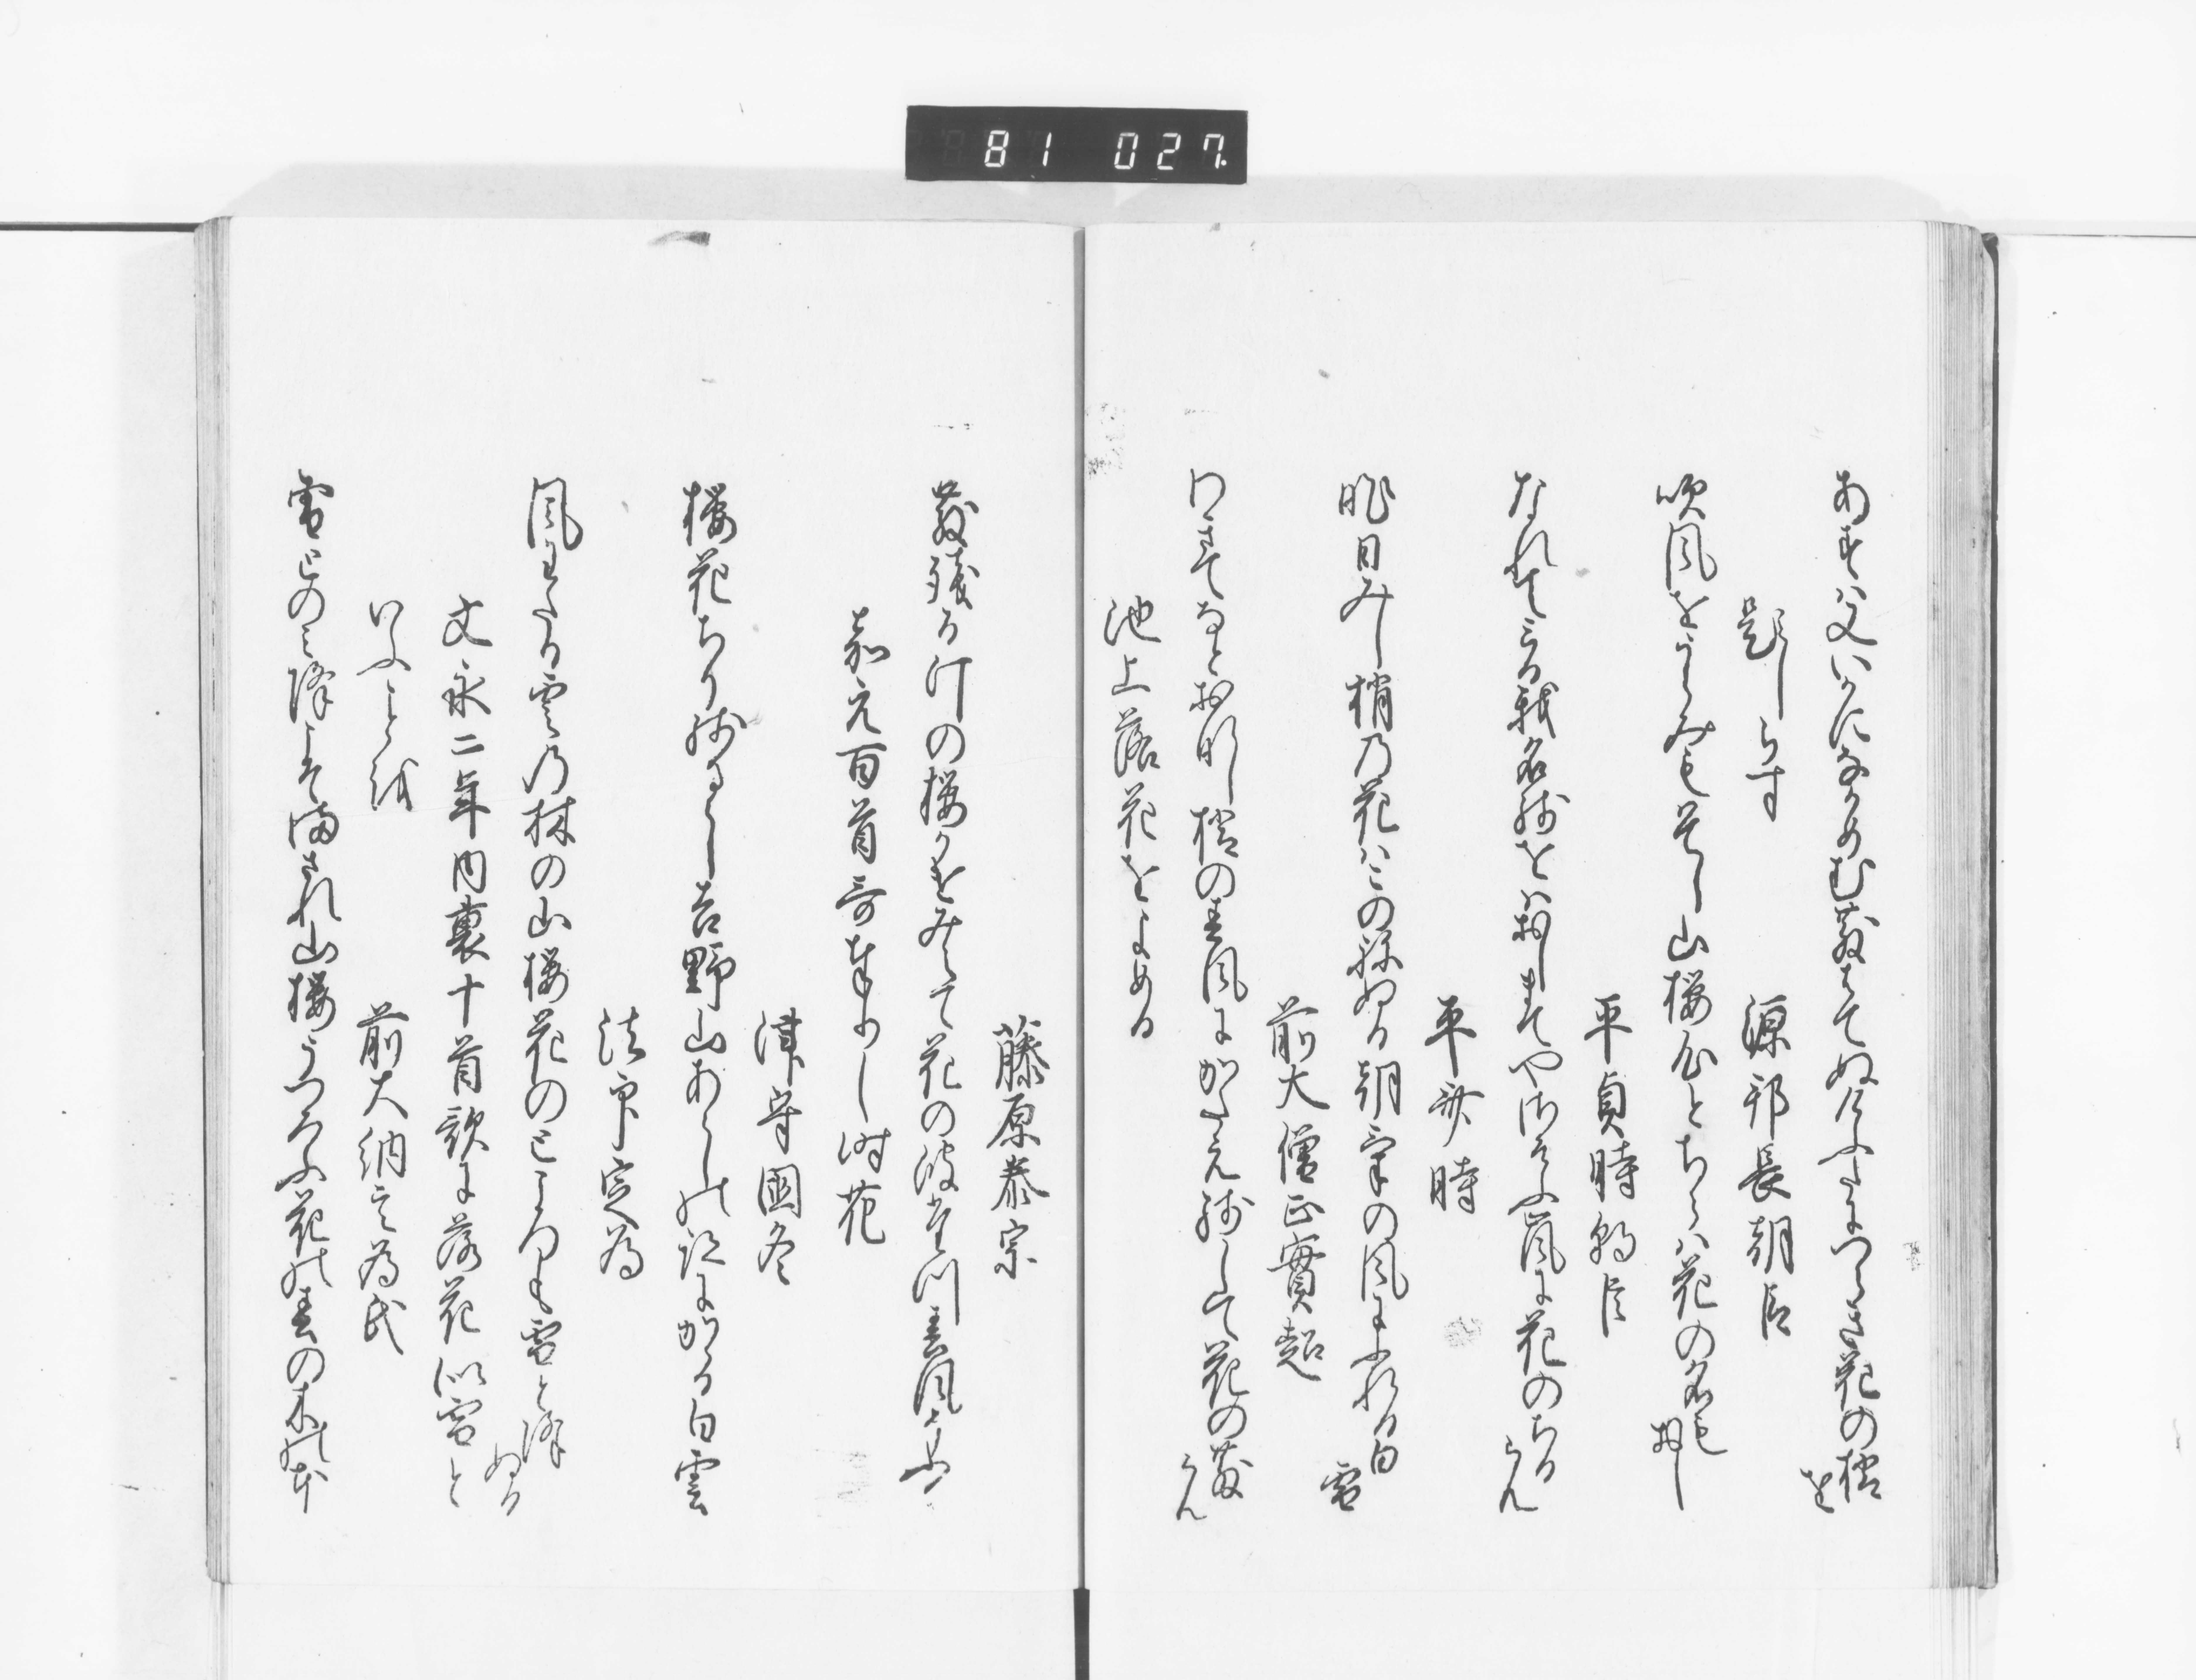 81 027
あすは又いかになかめむ散はてぬけふたにつらき花の梢を
題しらす
源邦長朝臣
吹風をうらみもそせし山桜心とちらは花の名もおし
平貞時朝臣
なれてみる我名残をはおしますてやさそふ嵐に花のちるらん
平斉時
昨日みし梢の花はこのねぬる朝けの風にふれる白雪
前大僧正實超
わきてなとおなし梢の春風にかたえ残して花の散らん
池上落花をよめる
藤原泰宗
散残る汀の桜かけみえて花の波たつ春風そふく
嘉元百首哥奉りし時花
津守國冬
桜花ちり残るらし吉野山あらしの跡にかゝる白雲
法印定為
風わたる雲の林の山桜花のところも雪と降ぬる
文永二年内裏十首歌に落花似雪と
いふことを
前大納言為氏
雪とのみ降こそまされ山桜うつろふ花の春の木のもと